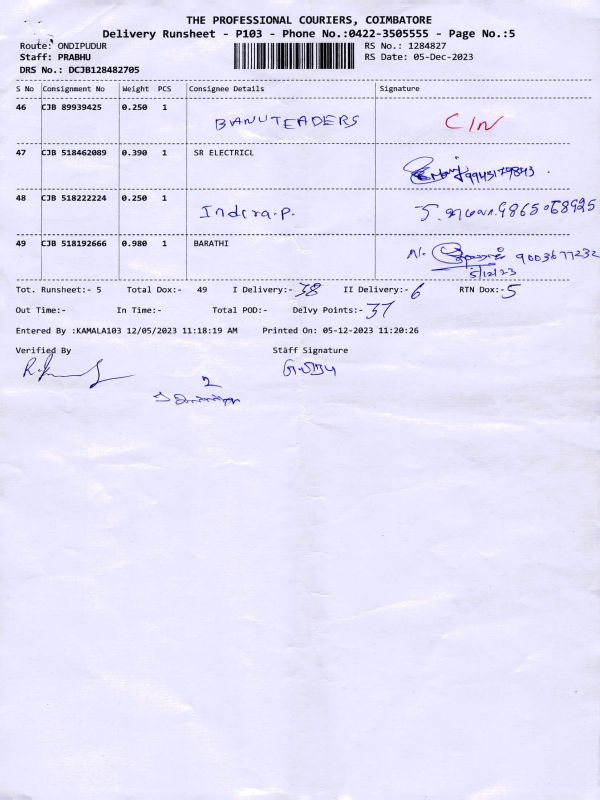 THE PROFESSIONAL COURIERS, COIMBATORE
Delivery Runsheet - P103 - Phone No.:0422-3505555 - Page No.:5
Route: ONDIPUDUR RS No.: 1284827
Staff: PRABHU RS Date: 05-Dec-2023
DRS No.: DCJB128482705
S No Consignment No Weight PCS Consignee Details Signature
46 CJB 89939425 0.250 1 BANUTEADERS C/N
47 CJB 518462089 0.390 1 SR ELECTRICL 9943179843
48 CJB 518222224 0.250 1 Indira.P. 9865068925
49 CJB 518192666 0.980 1 BARATHI N. 9003677232
5/12/23
Tot. Runsheet:- 5 Total Dox:- 49 I Delivery:- 38 II Delivery:- 6 RTN Dox:- 5
Out Time:- In Time:- Total POD:- Delvy Points:- 37
Entered By :KAMALA103 12/05/2023 11:18:19 AM Printed On: 05-12-2023 11:20:26
Verified By Staff Signature
2